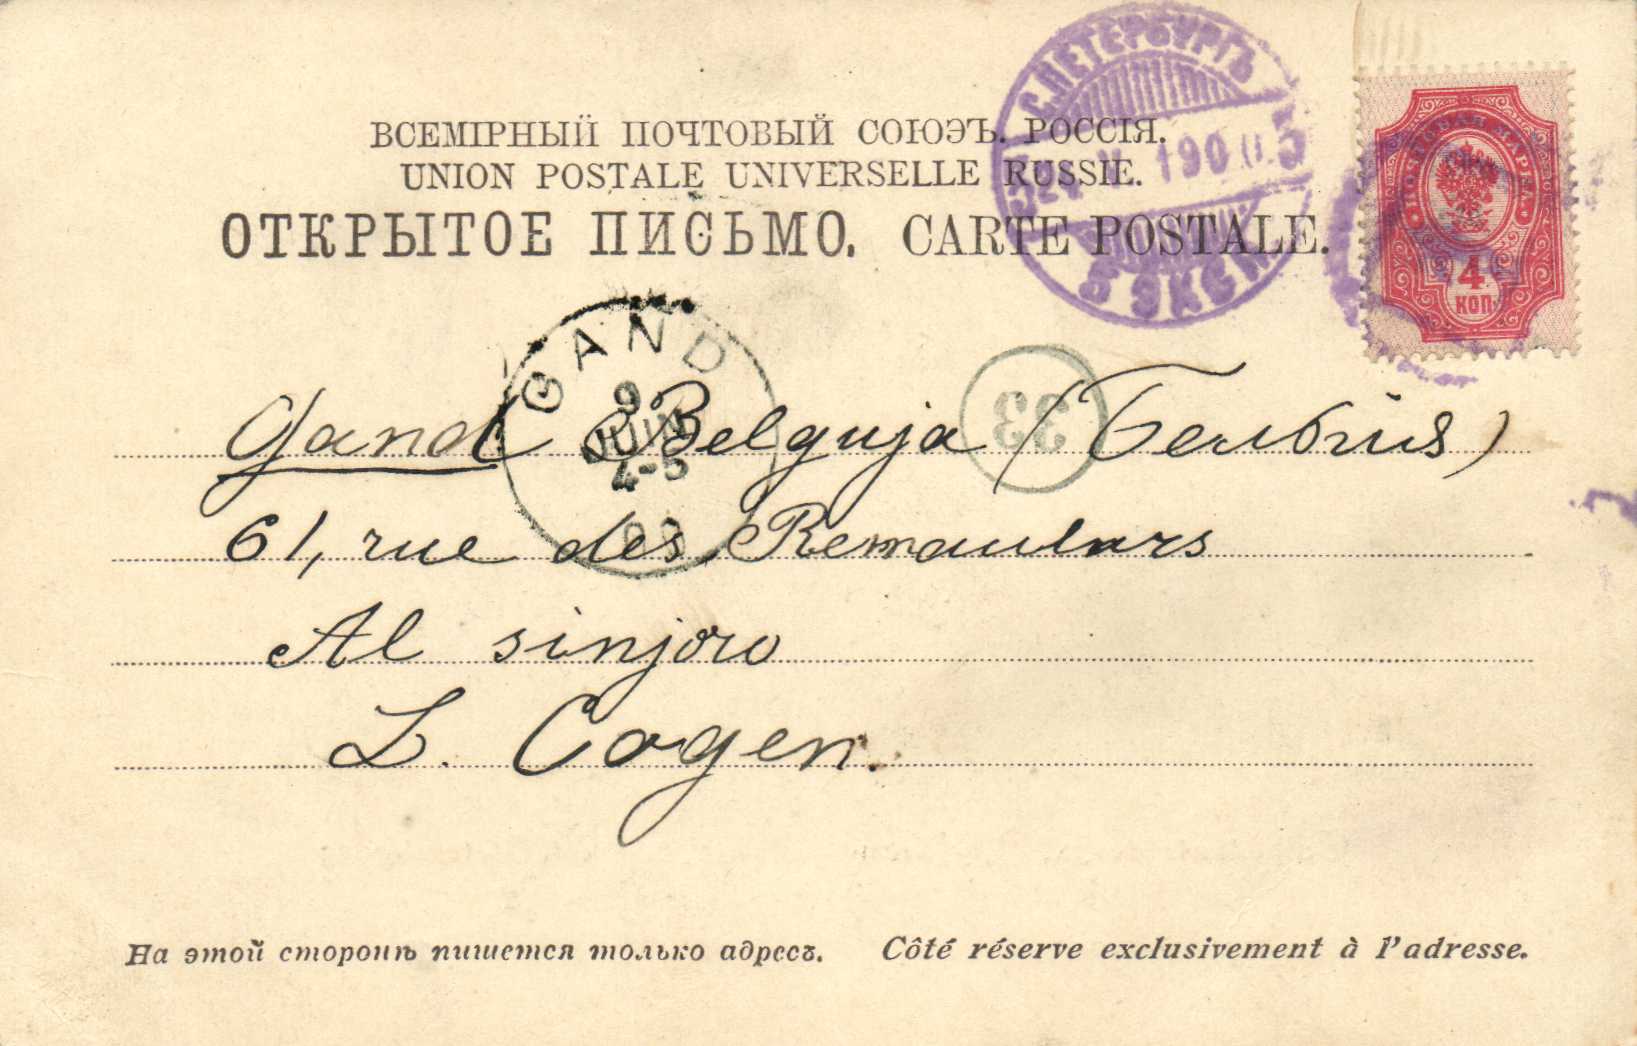 ВСЕМІРНЫЙ ПОЧТОВЫЙ СОЮЭЪ. РОССІЯ.
UNION POSTALE UNIVERSELLE RUSSIE.
ОТКРЫТОЕ ПИСЬМО. CARTE POSTALE.
С.ПЕТЕРБУРГЪ
1900
5 ЭКСП
ПОЧТОВАЯ МАРКА
4
КОП.
GAND
9
JUIN
4-5
33
Gand Belguja (Бельгія)
61, rue des Remoulurs
Al sinjoro
L. Cogen.
На этой сторонѣ пишется только адресъ. Côté réserve exclusivement à l'adresse.